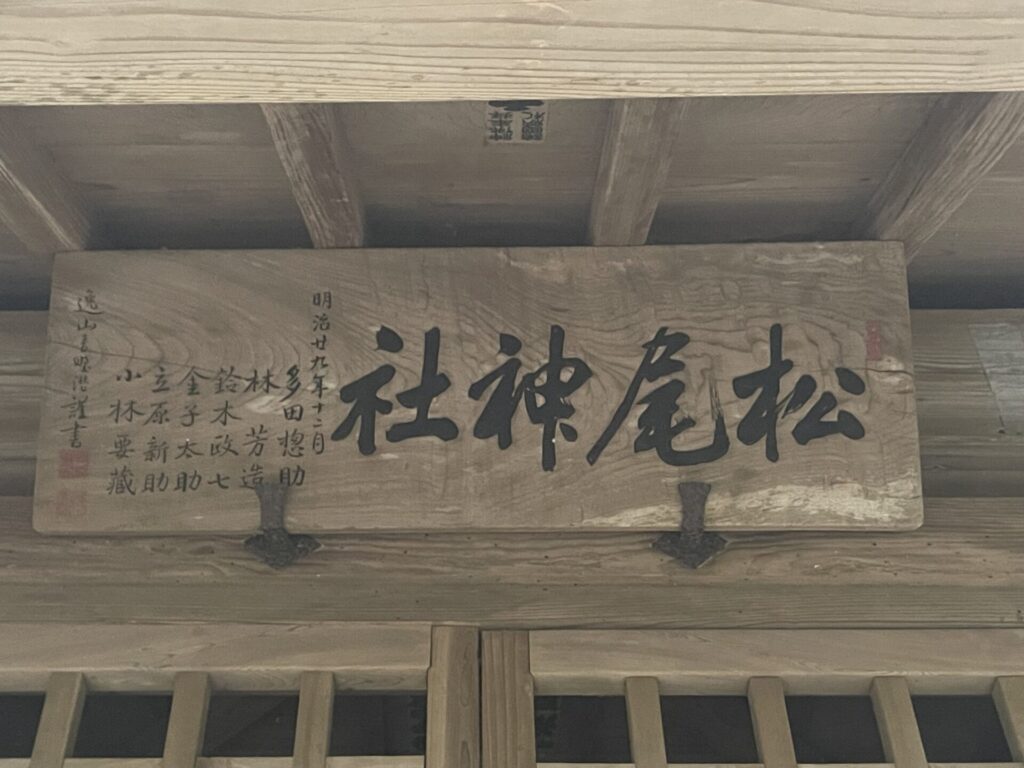 松尾神社
明治廿九年十二月
多田惣助
林芳造
鈴木政七
金子太助
立原新助
小林要藏
逸山 謹書